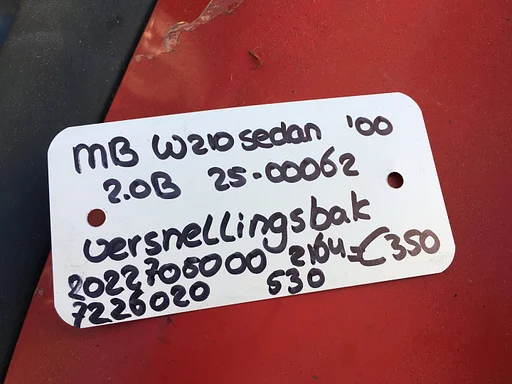 MB W210 sedan '00
2.0B 25-00062
versnellingsbak
2022706000 2164 €350
7226020 530